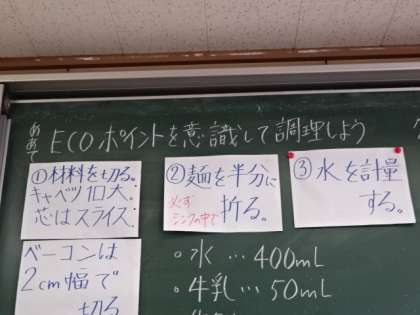 めあて ECOポイントを意識して調理しよう
①材料を切る。
キャベツ10大。
芯はスライス。
ベーコンは
2cm幅で
切る
②麺を半分に
必ず
シンクの中で
折る。
③水を計量
する。
・水…400mL
・牛乳…50mL